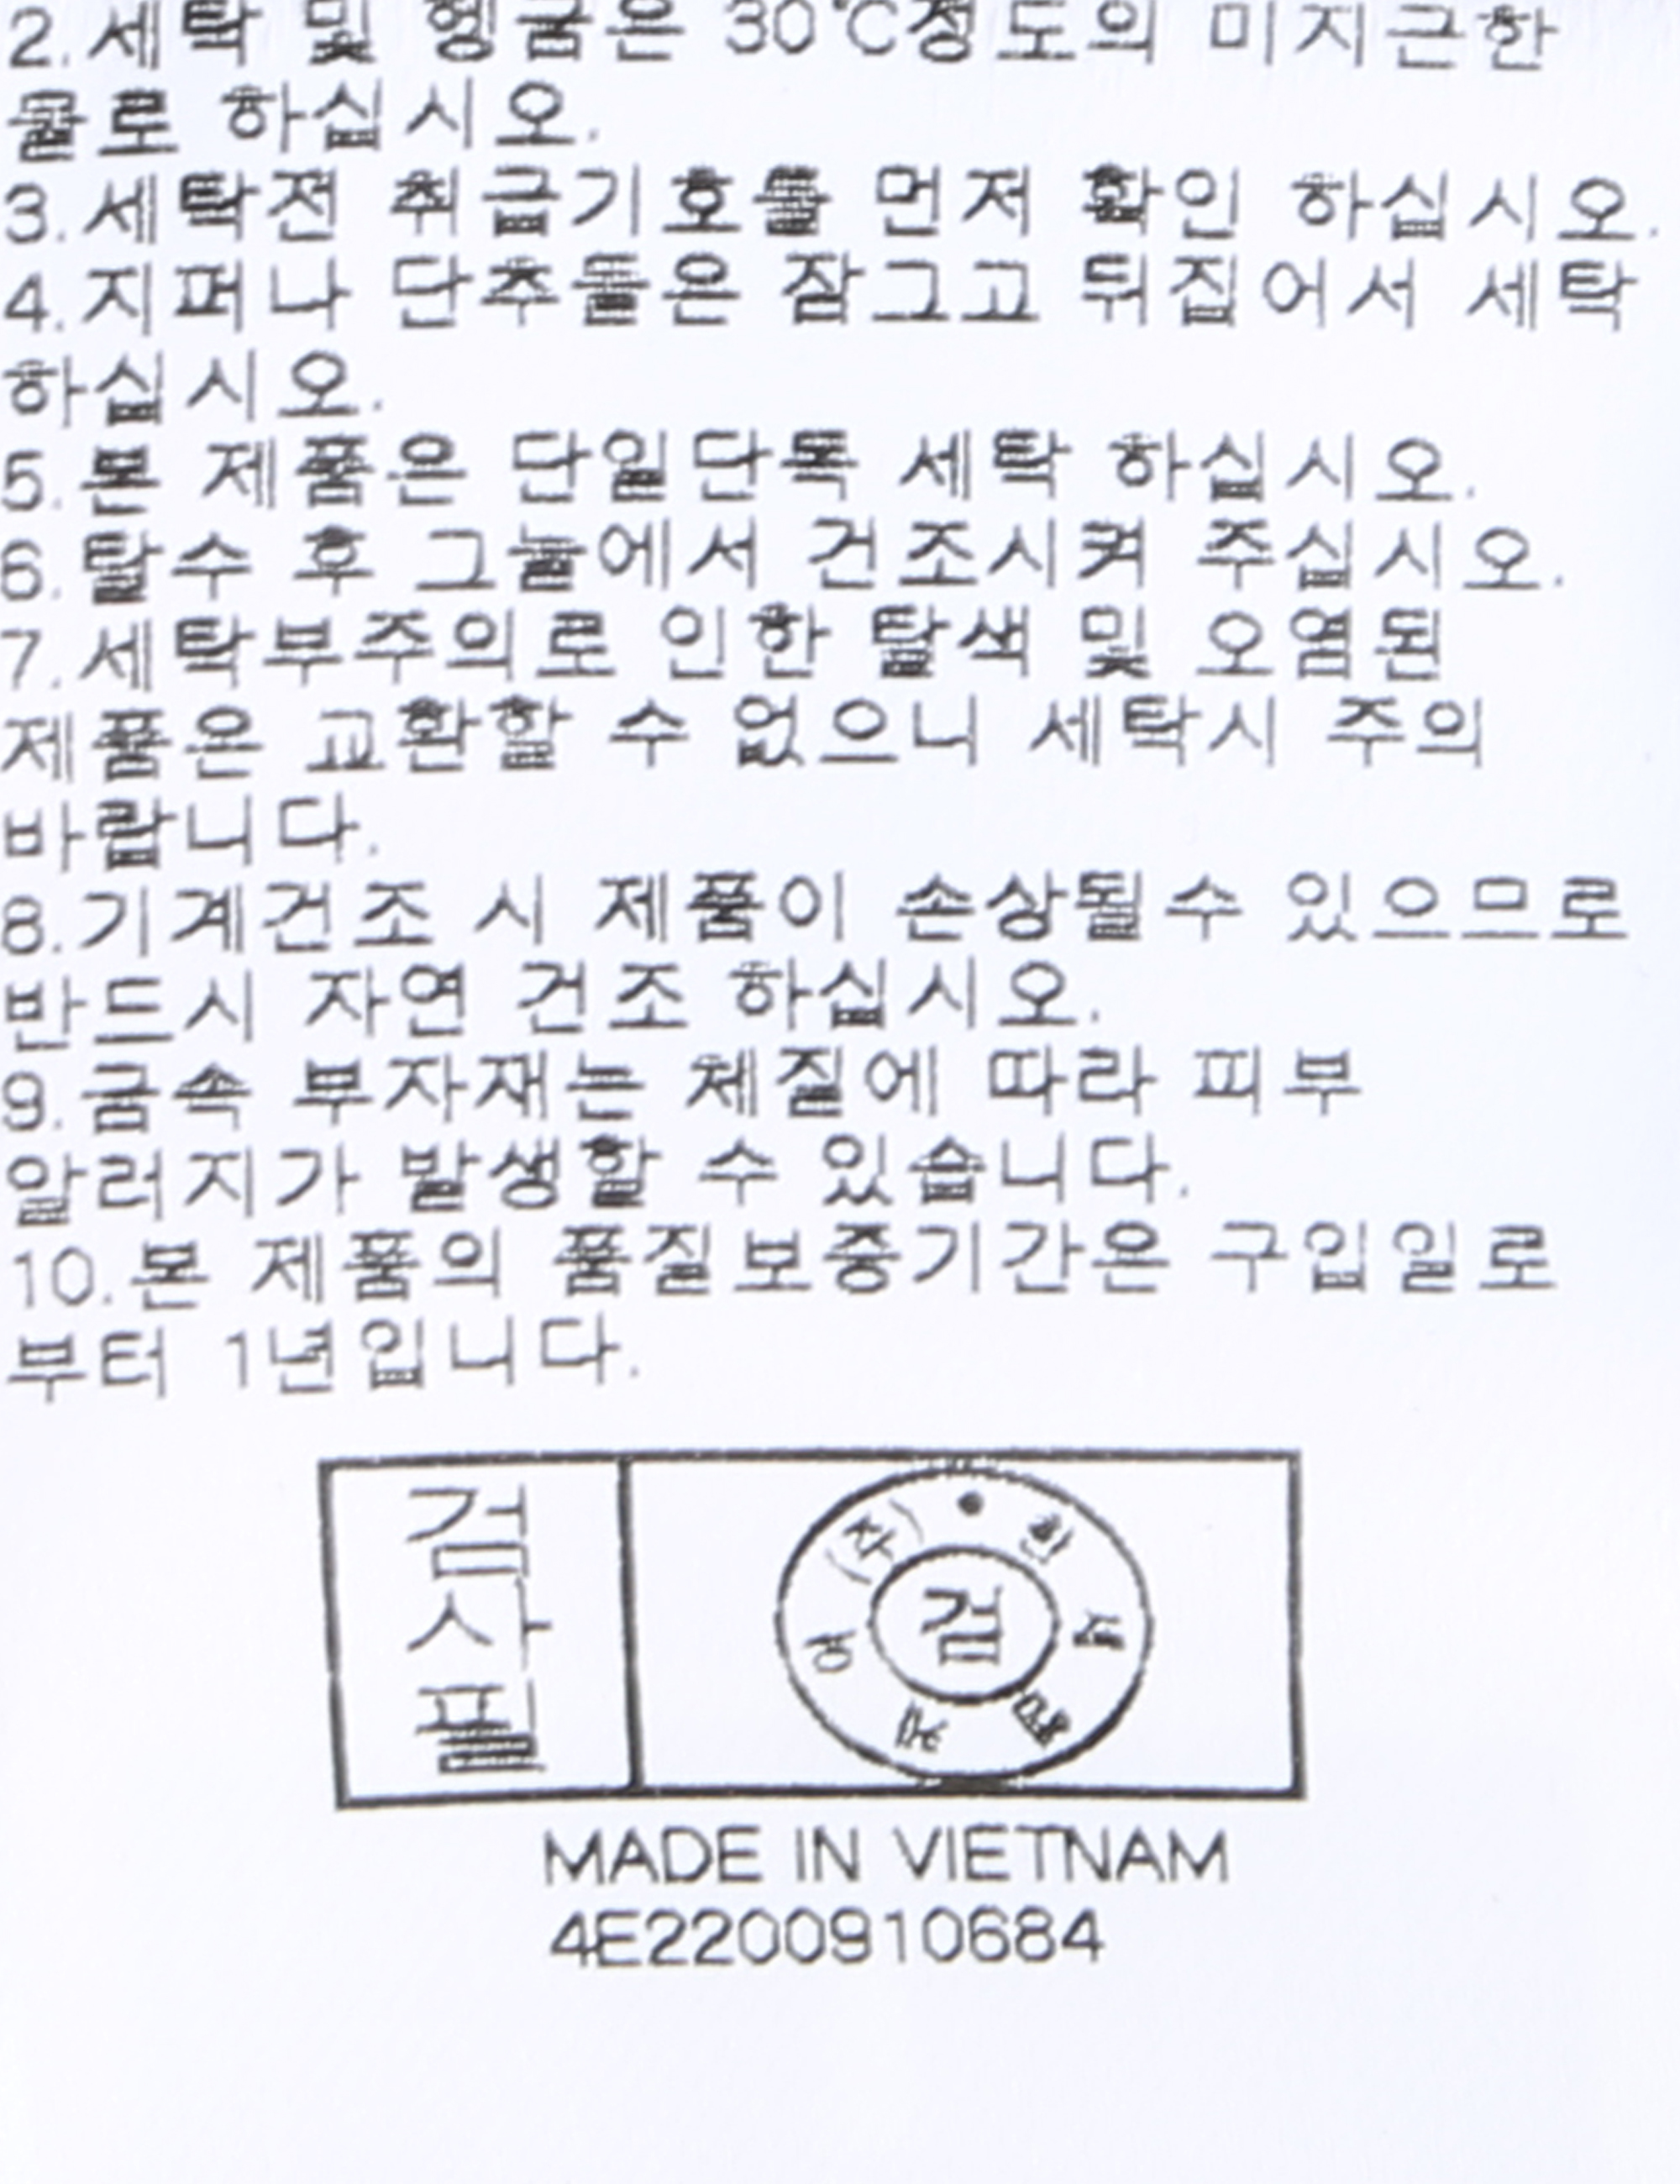 2.세탁 및 헹굼은 30℃정도의 미지근한
물로 하십시오.
3.세탁전 취급기호를 먼저 확인 하십시오.
4.지퍼나 단추들은 잠그고 뒤집어서 세탁
하십시오.
5.본 제품은 단일단독 세탁 하십시오.
6.탈수 후 그늘에서 건조시켜 주십시오.
7.세탁부주의로 인한 탈색 및 오염된
제품은 교환할 수 없으니 세탁시 주의
바랍니다.
8.기계건조 시 제품이 손상될수 있으므로
반드시 자연 건조 하십시오.
9.금속 부자재는 체질에 따라 피부
알러지가 발생할 수 있습니다.
10.본 제품의 품질보증기간은 구입일로
부터 1년입니다.
검사필
검
MADE IN VIETNAM
4E2200910684